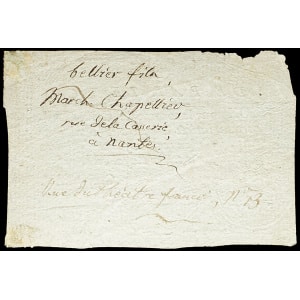 Tellier fils,
March. Chapellier,
rue de la Casserie
à Nantes.
Rue du Théâtre français, n° 13.